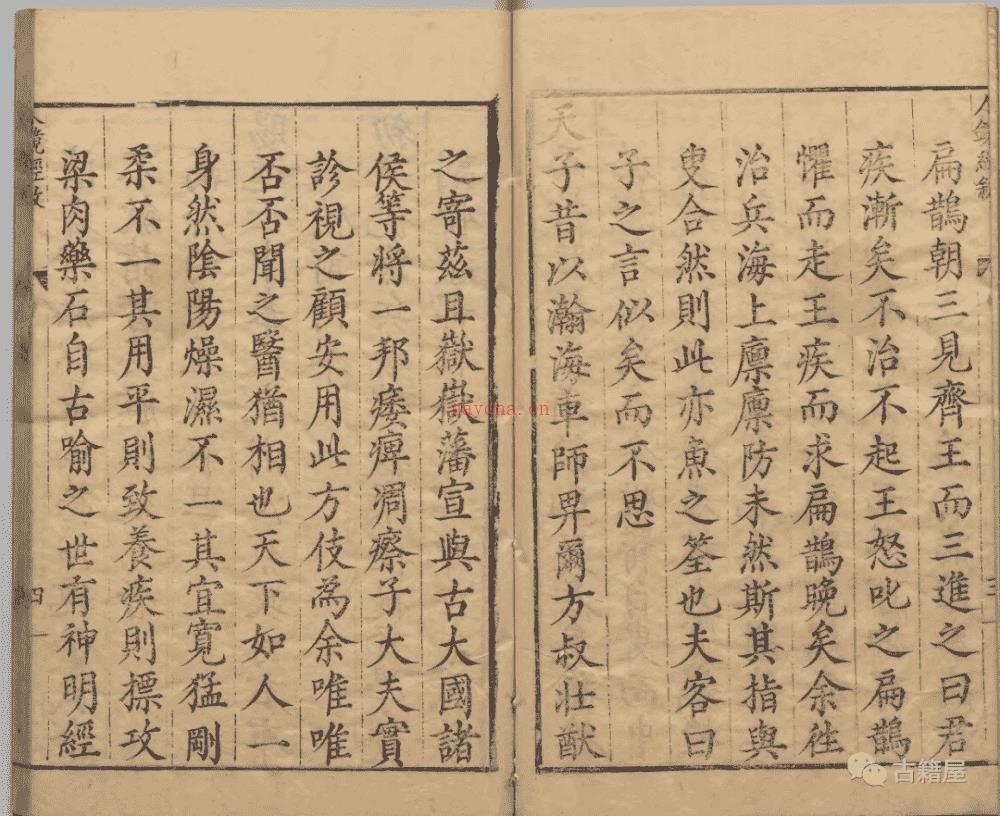 扁鵲朝三見齊王而三進之曰君
疾漸矣不治不起王怒叱之扁鵲
懼而走王疾而求扁鵲晚矣余往
治兵海上廪廪防未然斯其指與
叟合然則此亦魚之筌也夫客曰
子之言似矣而不思
天子昔以瀚海車師畀爾方叔壯猷
之寄茲且嶽嶽藩宣與古大國諸
侯等將一邦痿痺凋瘵子大夫實
診視之顧安用此方伎為余唯唯
否否聞之醫猶相也天下如人一
身然陰陽燥濕不一其宜寬猛剛
柔不一其用平則致養疾則摽攻
梁肉藥石自古喻之世有神明經
四
nayona.cn
古籍屋